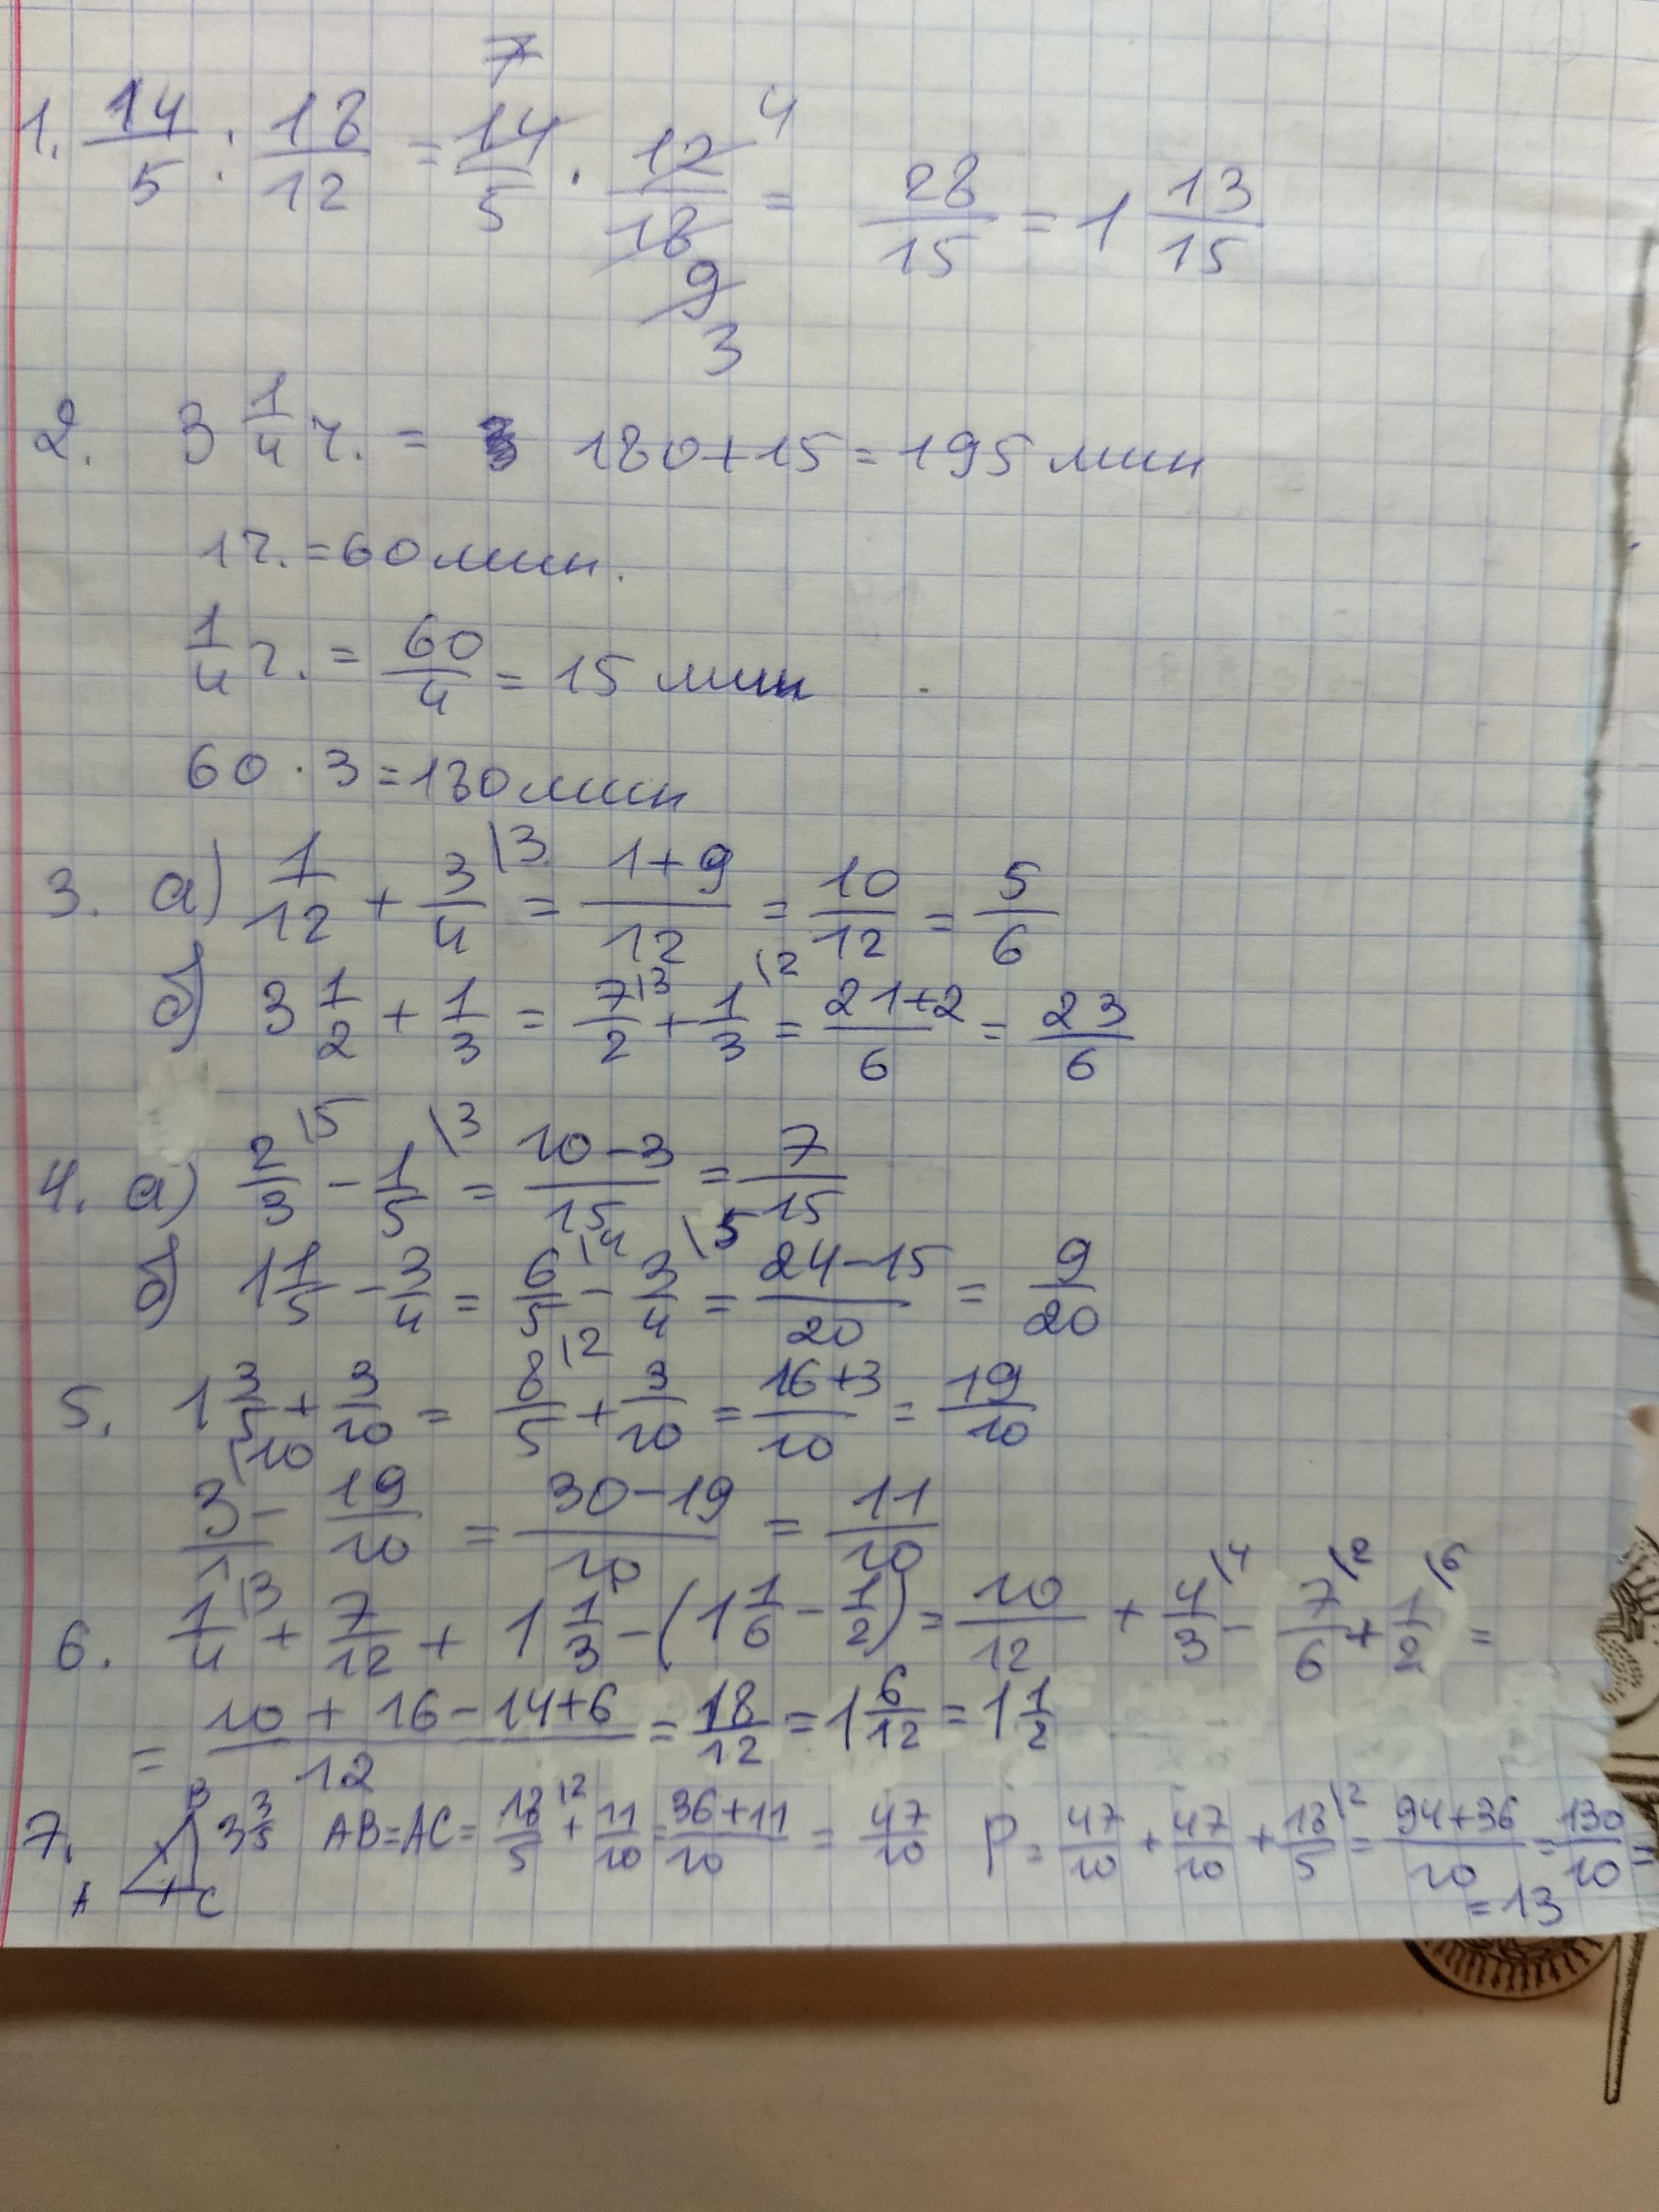 1. 14/5 : 18/12 = 14/5 · 12/18 = 28/15 = 1 13/15
7 4 9 3
2. 3 1/4 ч. = 180+15=195 мин
1ч.=60мин.
1/4 ч. = 60/4 = 15 мин
60·3=180мин
3. а) 1/12 + 3/4 \3 = 1+9/12 = 10/12 = 5/6
б) 3 1/2 + 1/3 = 7/2 \3 + 1/3 \2 = 21+2/6 = 23/6
4. а) 2/3 \5 - 1/5 \3 = 10-3/15 = 7/15
б) 1 1/5 - 3/4 = 6/5 \4 - 3/4 \5 = 24-15/20 = 9/20
5. 1 3/5 + 3/10 = 8/5 \2 + 3/10 = 16+3/10 = 19/10
3/1 \10 - 19/10 = 30-19/10 = 11/10
6. 1/4 \3 + 7/12 + 1 1/3 - (1 1/6 - 1/2) = 10/12 + 4/3 \4 - 7/6 \2 + 1/2 \6 =
= 10+16-14+6/12 = 18/12 = 1 6/12 = 1 1/2
7. B A C 3 3/5 AB=AC= 18/5 \2 + 11/10 = 36+11/10 = 47/10 P= 47/10 + 47/10 + 18/5 \2 = 94+36/10 = 130/10 =
=13